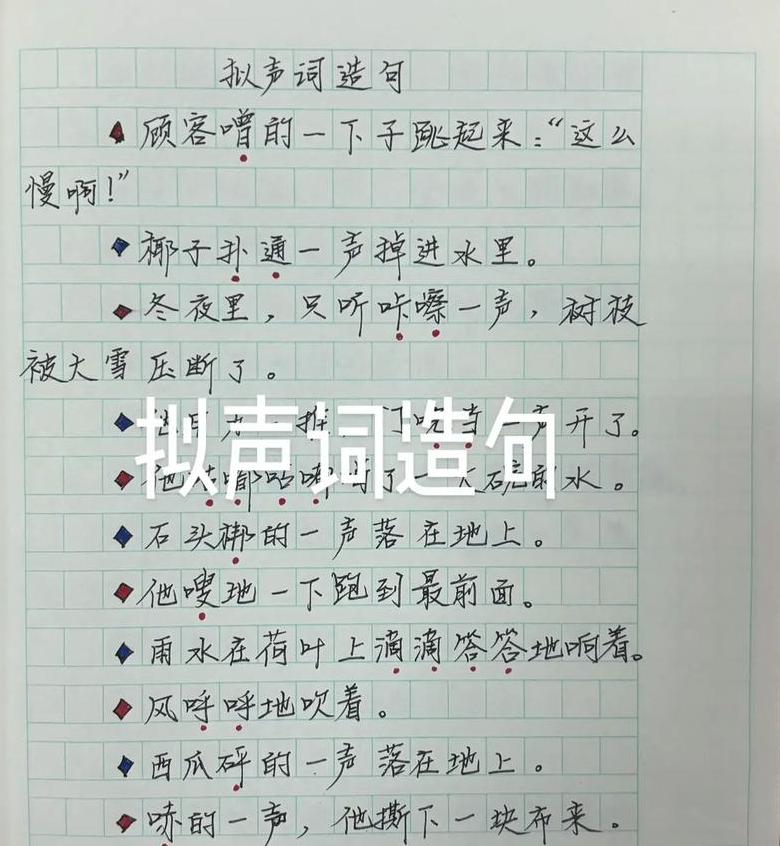 拟声词造句
顾客噌的一下子跳起来:“这么
慢啊!”
椰子扑通一声掉进水里。
冬夜里,只听咔嚓一声,树枝
被大雪压断了。
他用力一推,门咣当一声开了。
拟声词造句
他咕嘟咕嘟 了一大碗的水。
石头梆的一声落在地上。
他嗖地一下跑到最前面。
雨水在荷叶上滴滴答答地响着。
风呼呼地吹着。
西瓜砰的一声落在地上。
哧的一声,他撕下一块布来。